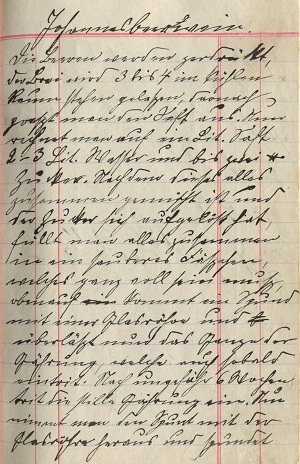 Johannesbeerwein.
Die Beeren werden zerdrückt,
der Brei wird 3 bis 4 im kühlen
Raum stehen gelassen, darnach
preßt man den Saft aus. Nun
rechnet man auf ein Lit. Saft
2-3 Lit. Wasser und bis zwei
Zucker. Nachdem dieses alles
zusammen gemischt ist und
der Zucker sich aufgelöst hat,
füllt man alles zusammen
in ein sauberes Fäßchen,
welches ganz voll sein muß,
obenauf kommt ein Spund
mit einer Glasröhre und
überläßt nund das Ganze der
Gährung, welche auch sobald
eintrit. Nach ungefähr 6 Wochen
trit die stille Gährung ein. Nu
nimmt man den Spund mit der
Glasröhre heraus und spundet